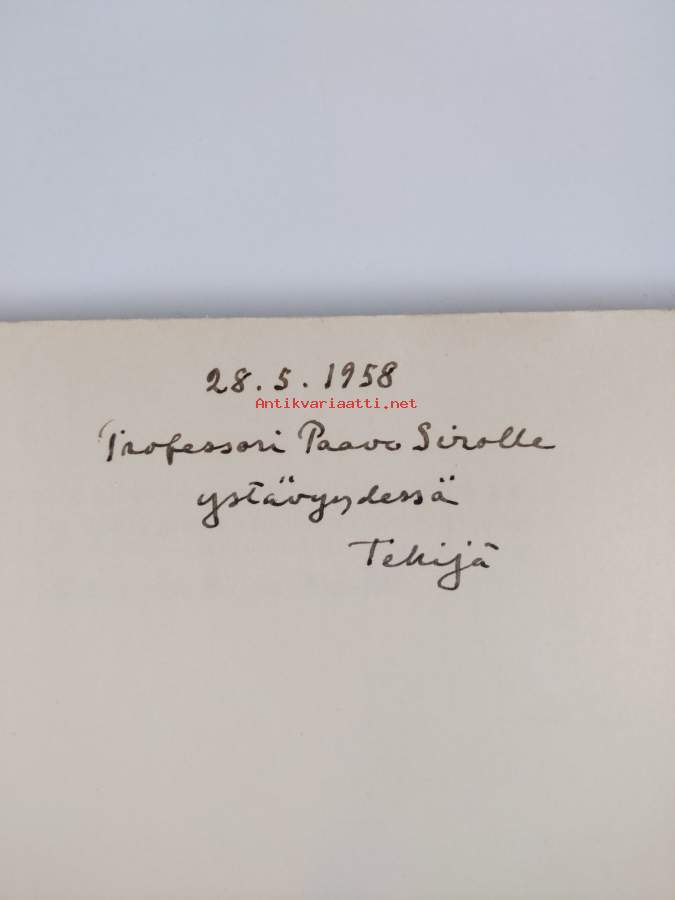 28.5.1958
Antikvariaatti.net
Professori Paavo Sirolle
ystävyydessä
Tekijä